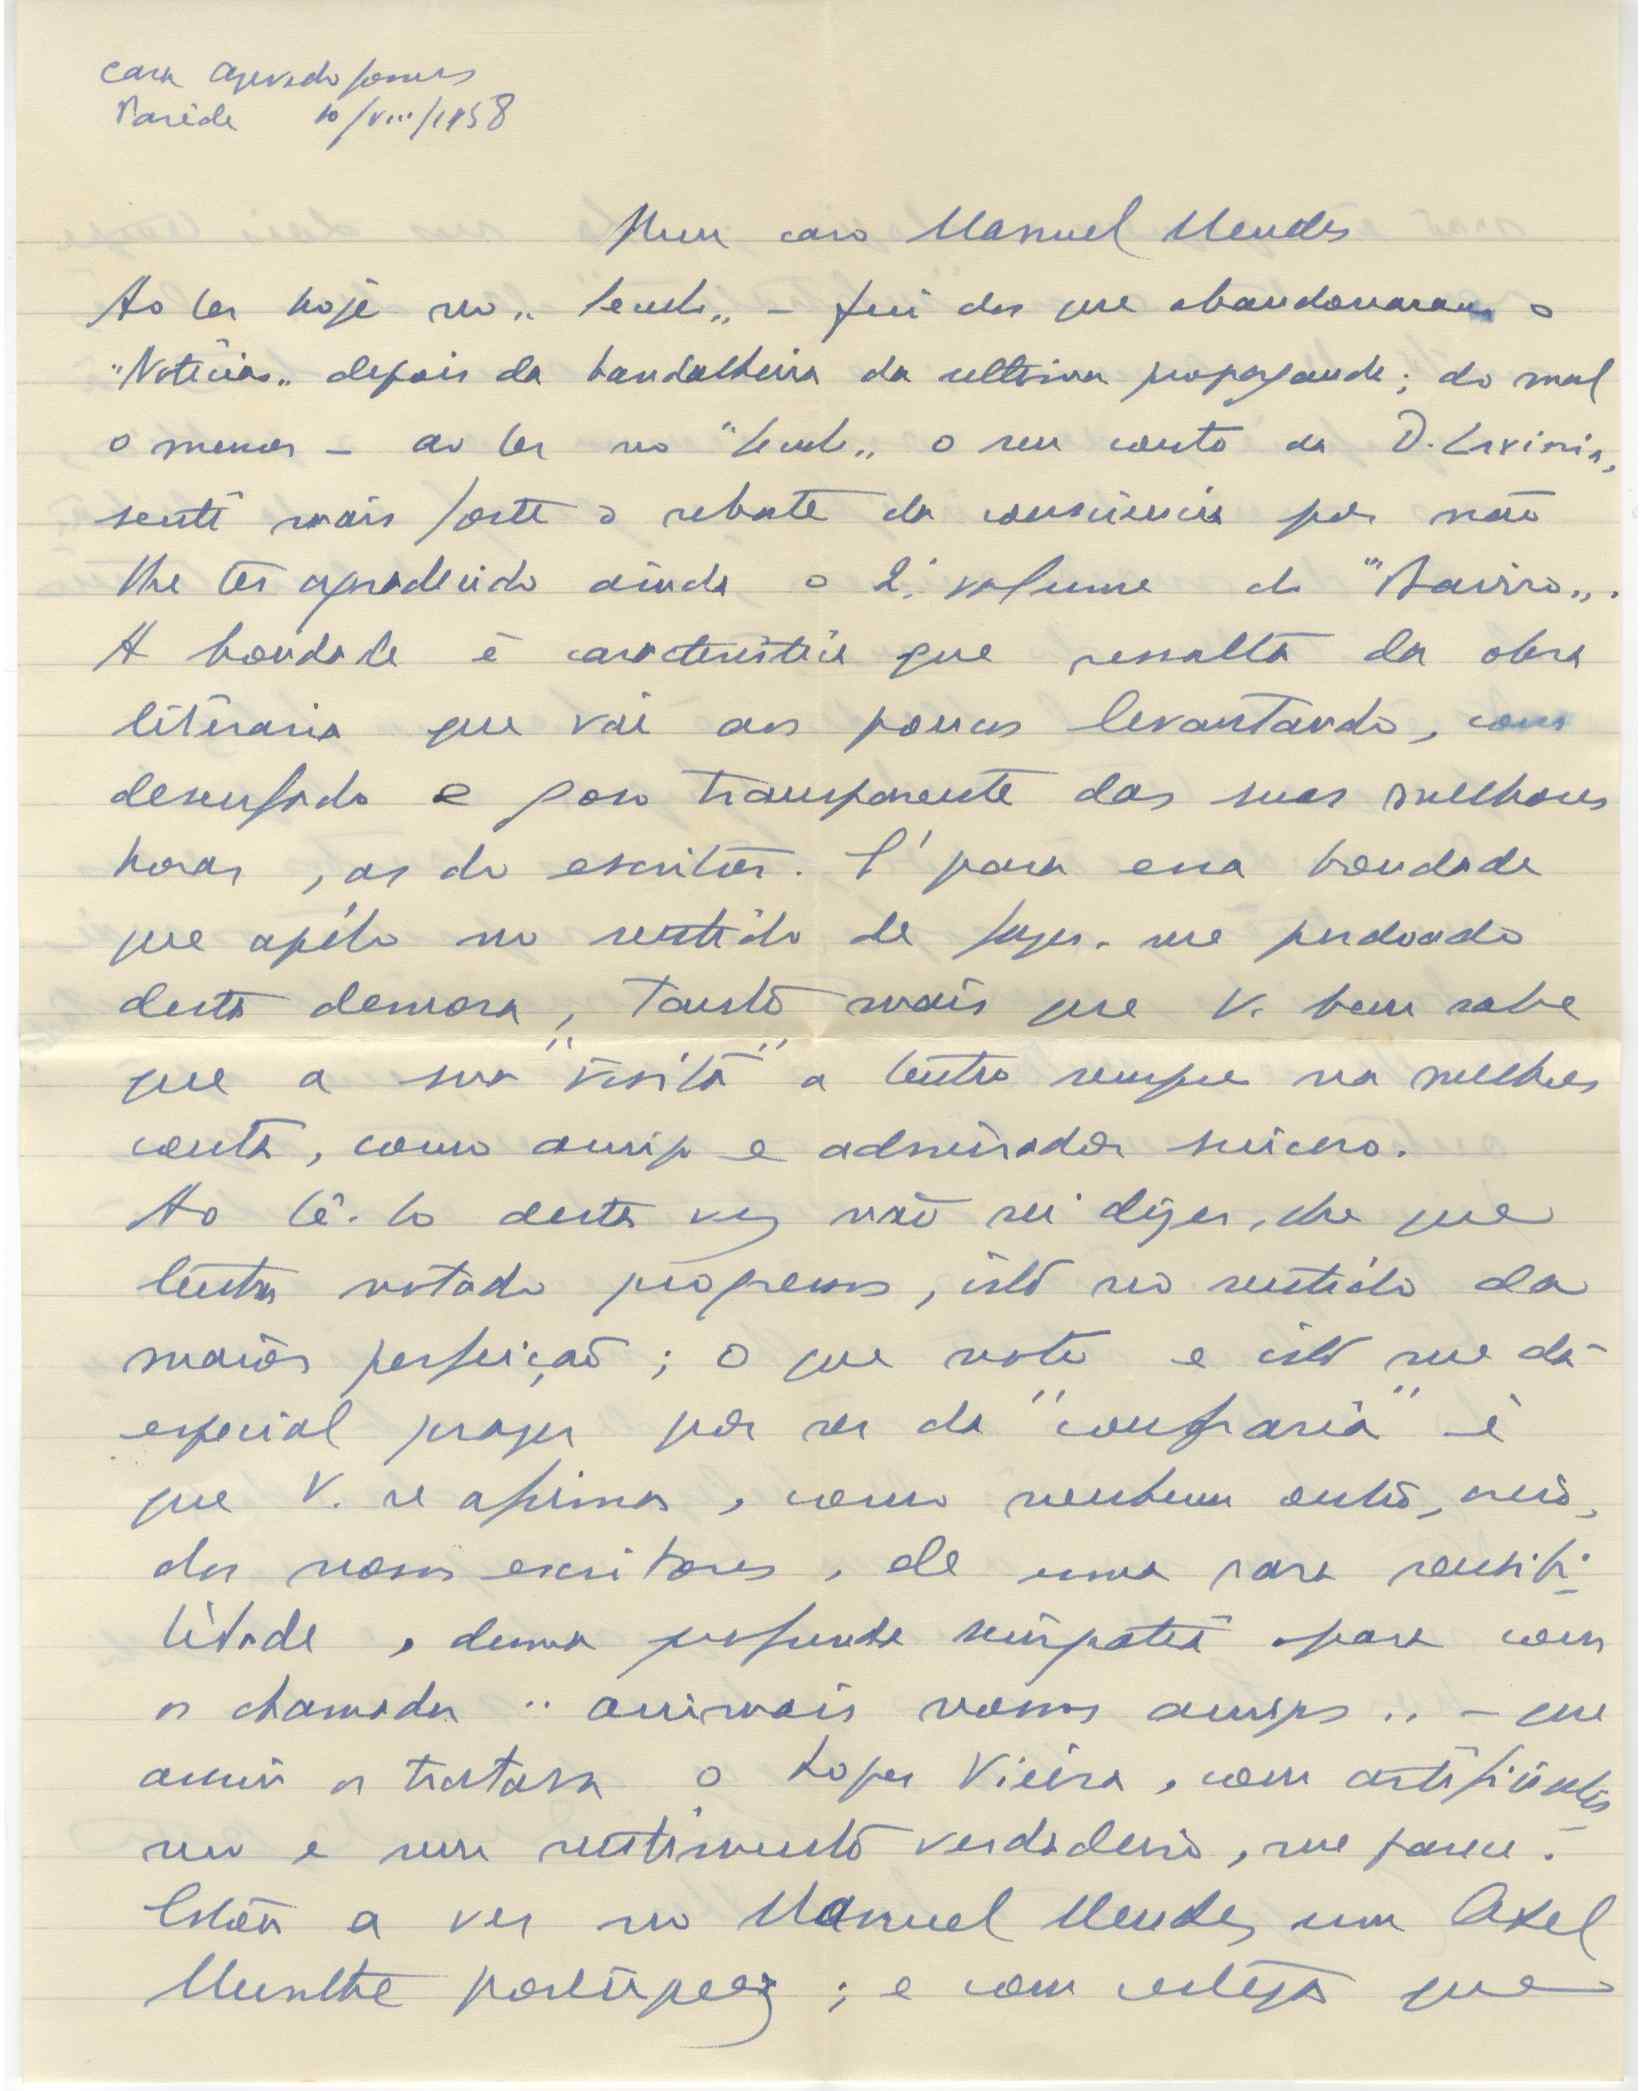 Casa Azevedo Gomes
Parêde 10/VIII/1958
Meu caro Manuel Mendes
Ao ler hoje no "Seculo" - fui dos que abandonaram o
"Noticias" depois da bandalheira da ultima propaganda; do mal
o menos - ao ler no "Seculo" o seu conto da D. Lavinia,
senti mais forte o rebate da consciencia por não
lhe ter agradecido ainda o 2.º volume do "Bairro".
A bondade é caracteristica que ressalta da obra
literaria que vai aos poucos levantando, com
desenfado e goso transparente das suas melhores
horas, as do escritor. E' para essa bondade
que apélo no sentido de fazer-me perdoado
desta demora, tanto mais que V. bem sabe
que a sua "visita" a tenho sempre na melhor
conta, como amigo e admirador sincero.
Ao lê-lo desta vez não sei dizer-lhe que
tenha notado progressos, isto no sentido da
maior perfeição; o que noto e isto me dá
especial prazer por ser da "confraria" é
que V. se afirma, como nenhum outro, creio,
dos nossos escritores, de uma rara sensibi-
lidade, duma profunda simpatia para com
os chamados "animais nossos amigos" - que
assim os tratava o Lopes Vieira, com artificialis-
mo e sem sentimento verdadeiro, me parece.
Estou a ver no Manuel Mendes um Axel
Munthe portuguez; e com certeza que